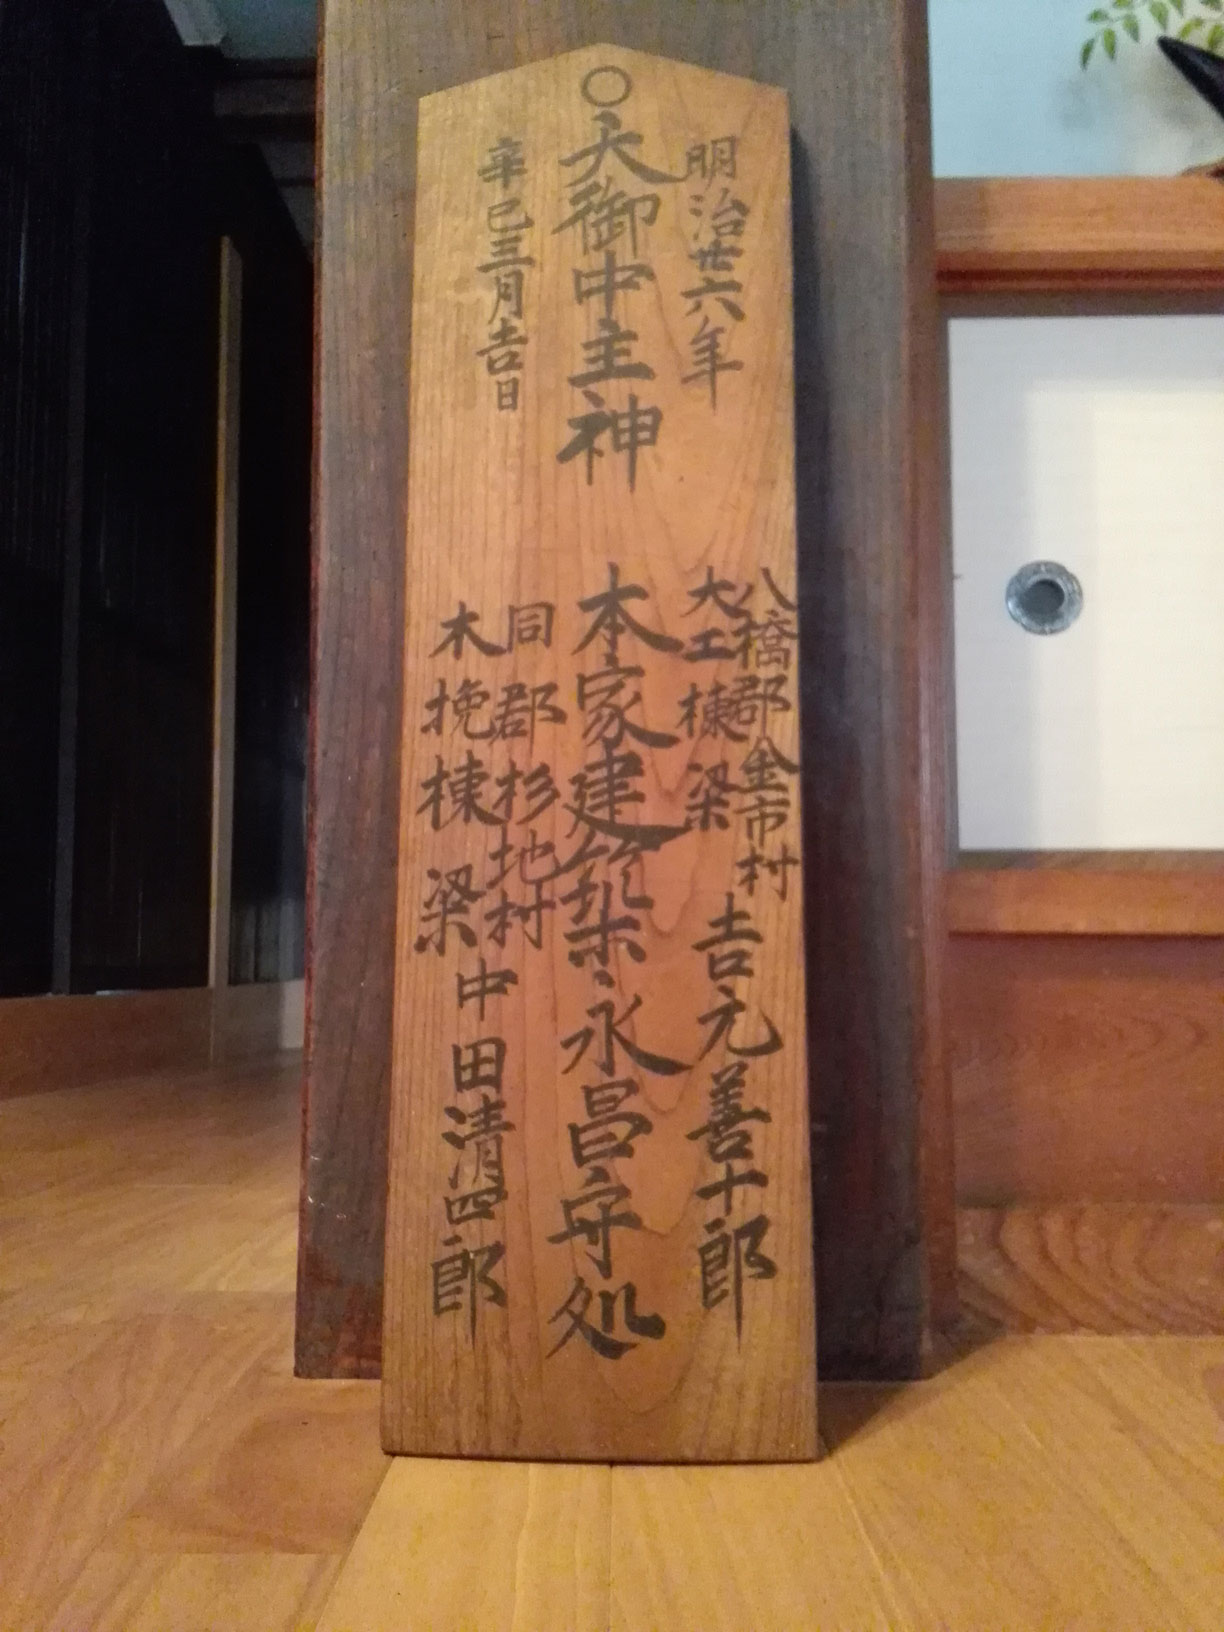 明治卅六年
八橋郡金市村
大工棟梁
吉元善十郎
○天御中主神
本家建築永昌守処
辛巳三月吉日
同郡杉地村
木挽棟梁
中田清四郎